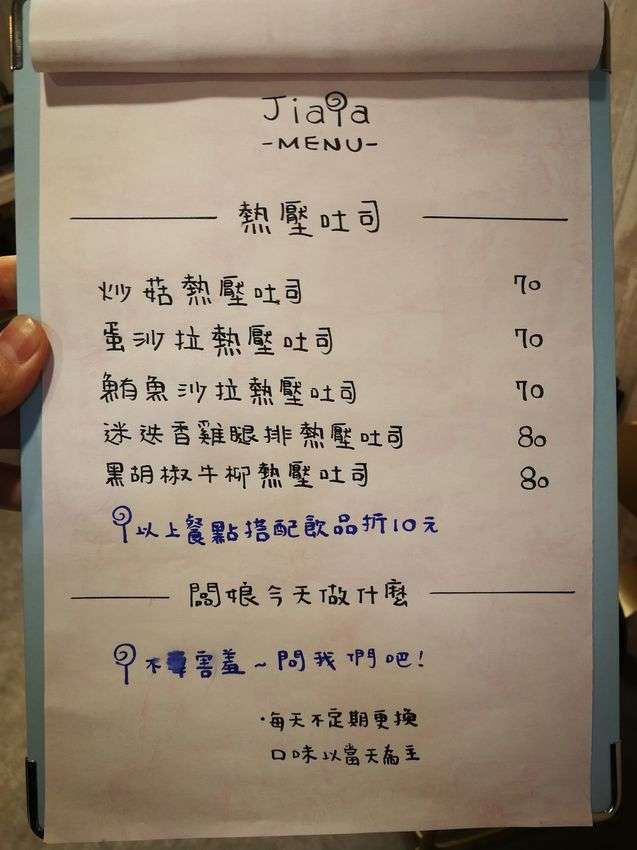 Jiaya
-MENU-
熱壓吐司
炒菇熱壓吐司 70
蛋沙拉熱壓吐司 70
鮪魚沙拉熱壓吐司 70
迷迭香雞腿排熱壓吐司 80
黑胡椒牛柳熱壓吐司 80
以上餐點搭配飲品折10元
闆娘今天做什麼
不害羞~問我們吧!
·每天不定期更換
口味以當天為主